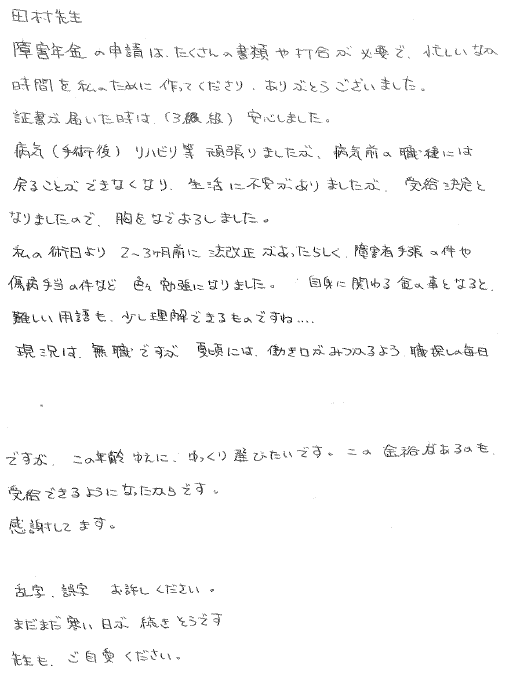 田村先生
障害年金の申請は、たくさんの書類や打合が必要で、忙しいなか
時間を私のために作ってくださり、ありがとうございました。
証書が届いた時は、(3級) 安心しました。
病気(手術後)リハビリ等 頑張りましたが、病気前の職種には
戻ることができなくなり、生活に不安がありましたが、受給決定と
なりましたので、胸をなでおろしました。
私の術日より 2~3ヶ月前に法改正があったらしく、障害者手張の件や
傷病手当の件など 色々勉強になりました。 自身に関わる金の事となると、
難しい用語も、少し理解できるものですね....
現況は、無職ですが 夏頃には、働き口がみつかるよう 職探しの毎日
ですが、この年齢ゆえに、ゆっくり選びたいです。この余裕があるのも、
受給できるようになったからです。
感謝してます。
乱字、誤字 お許しください。
まだまだ寒い日が続きそうです
先生も、ご自愛ください。